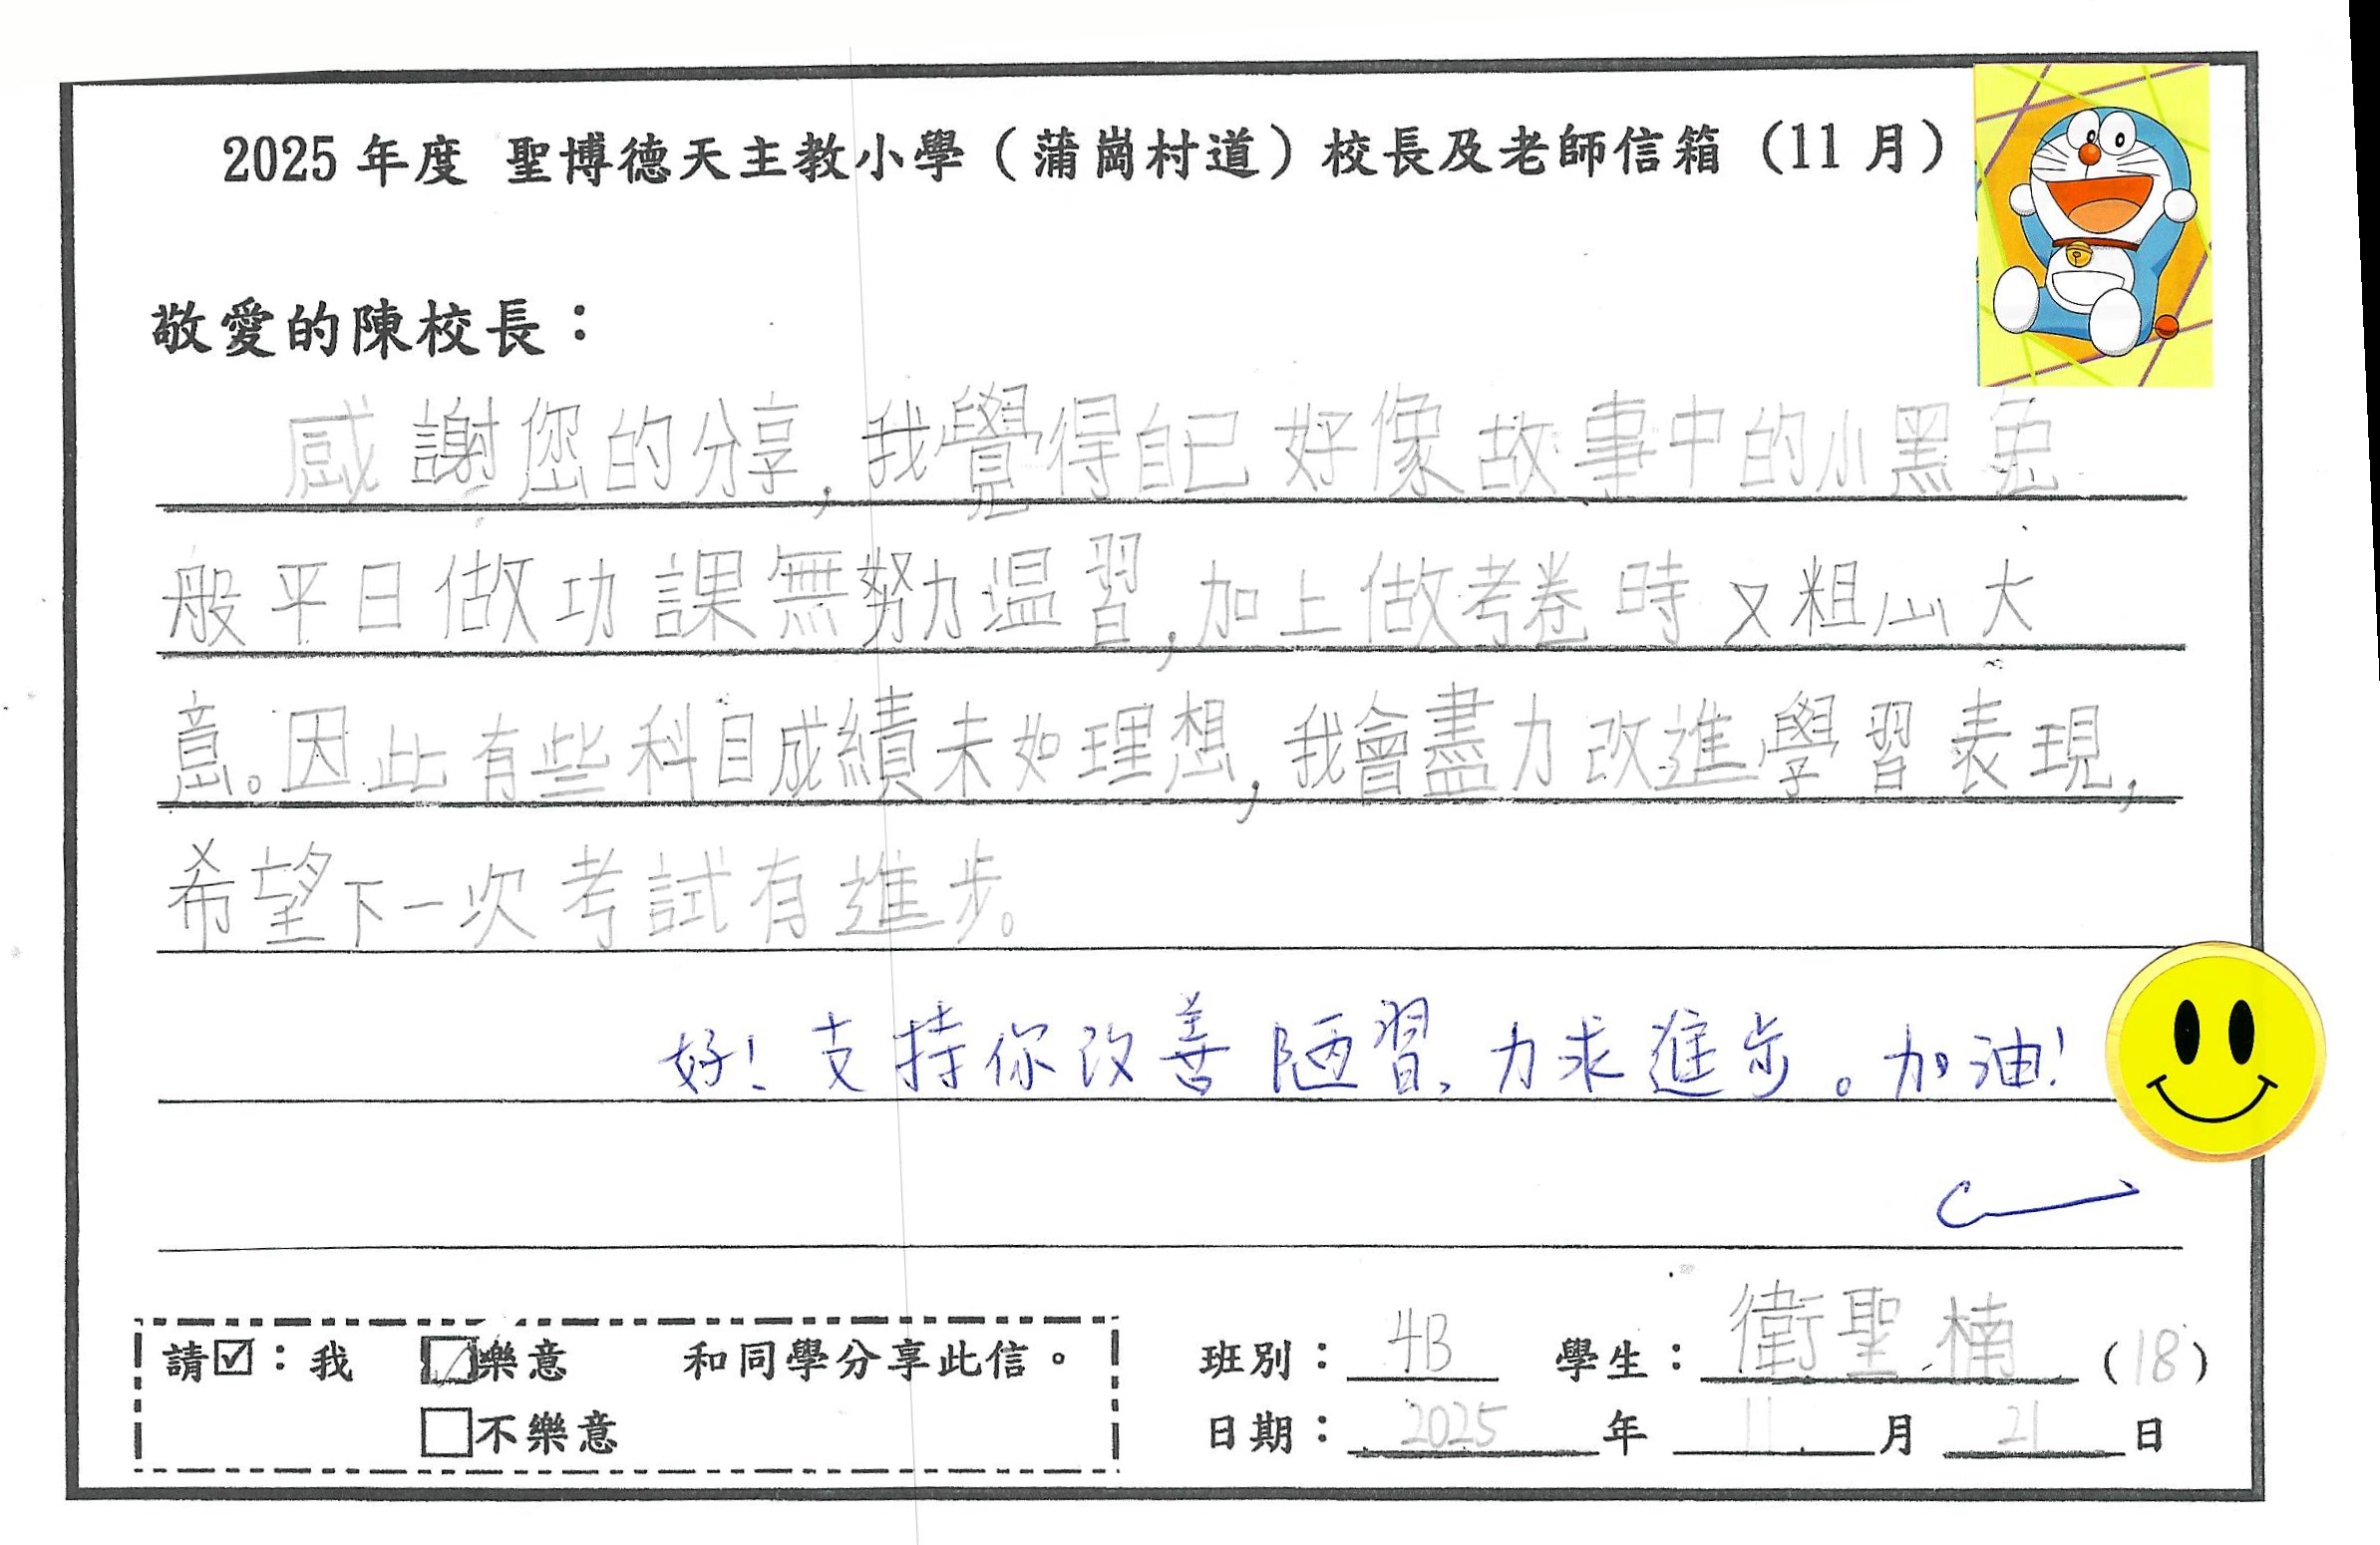 2025 年度 聖博德天主教小學（蒲崗村道）校長及老師信箱（11 月）
敬愛的陳校長：
感謝您的分享，我覺得自己好像故事中的小黑兔
般平日做功課無努力温習，加上做考卷時又粗心大
意。因此有些科目成績未如理想，我會盡力改進學習表現，
希望下一次考試有進步。
好！支持你改善陋習，力求進步。加油！
請☑：我 ☑樂意 和同學分享此信。
□不樂意
班別：4B 學生：衛聖楠（18）
日期：2025年11月21日